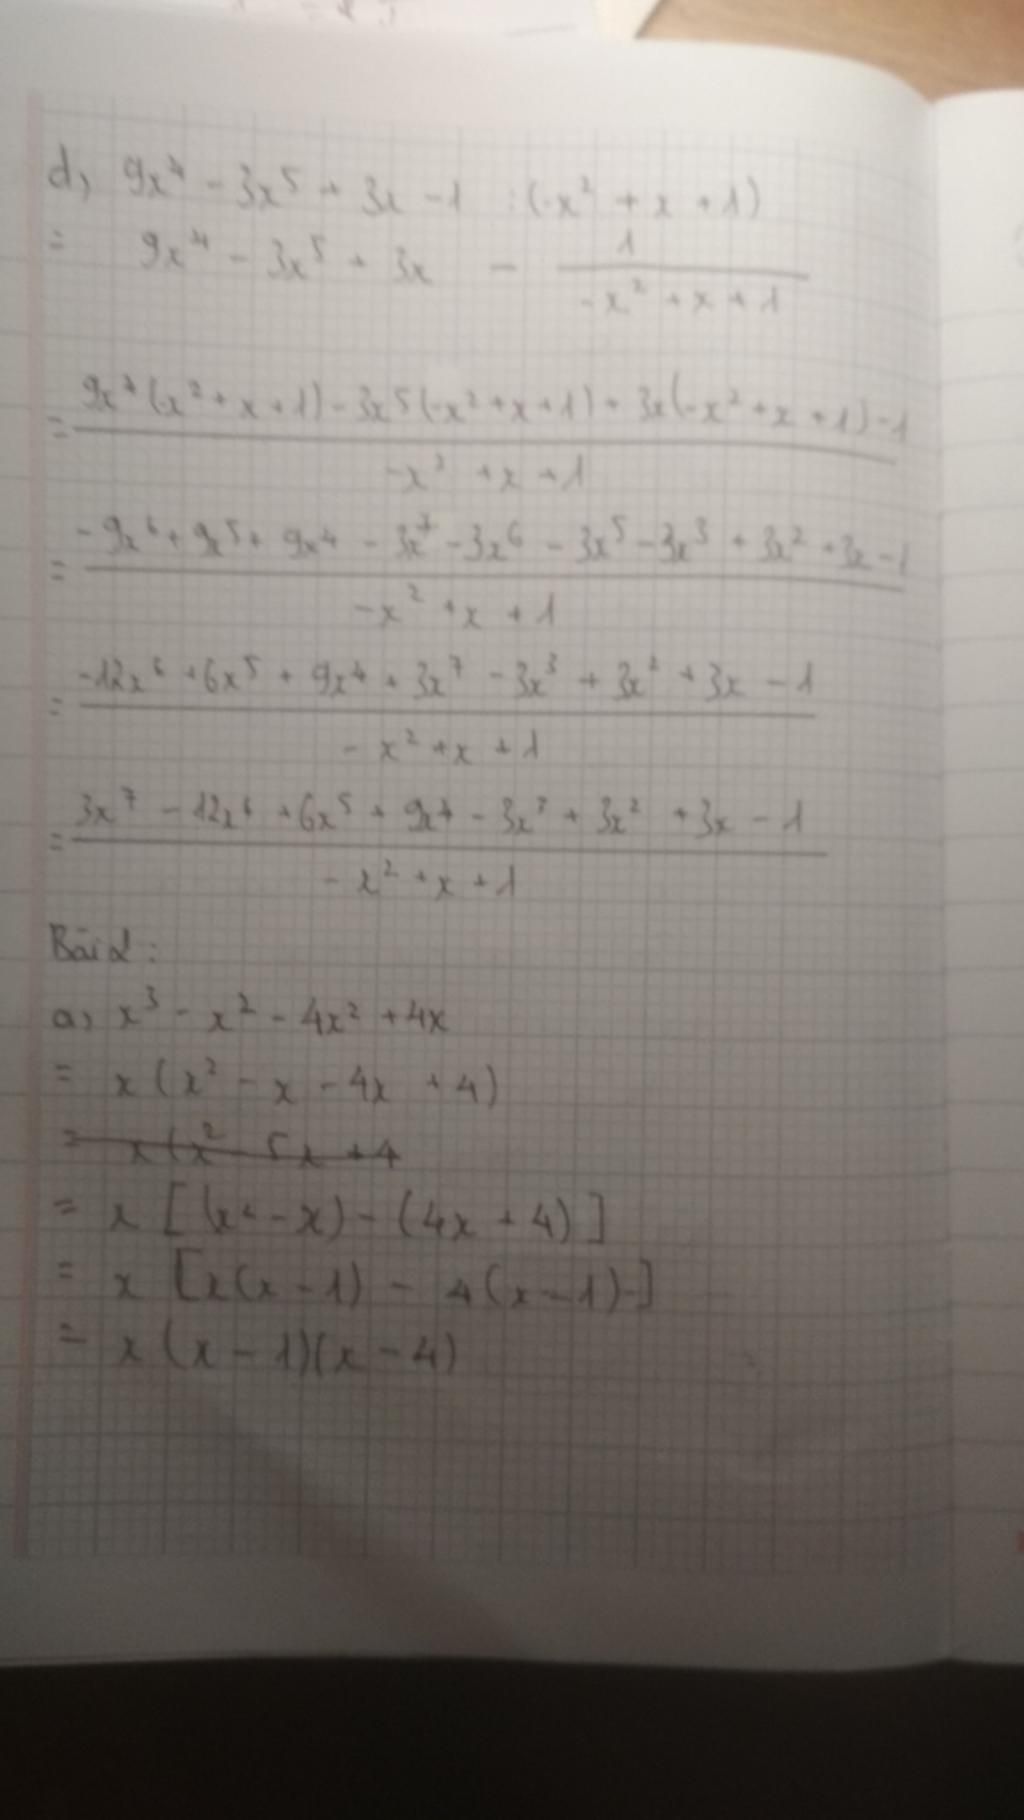 d, 9x⁴ - 3x⁵ + 3x - 1 : (-x² + x + 1)
= 9x⁴ - 3x⁵ + 3x - 1/(-x² + x + 1)
= (9x⁴(-x² + x + 1) - 3x⁵(-x² + x + 1) + 3x(-x² + x + 1) - 1)/(-x² + x + 1)
= (-9x⁶ + 9x⁵ + 9x⁴ - 3x⁷ - 3x⁶ - 3x⁵ - 3x³ + 3x² + 3x - 1)/(-x² + x + 1)
= (-12x⁶ + 6x⁵ + 9x⁴ + 3x⁷ - 3x³ + 3x² + 3x - 1)/(-x² + x + 1)
= (3x⁷ - 12x⁶ + 6x⁵ + 9x⁴ - 3x³ + 3x² + 3x - 1)/(-x² + x + 1)
Bài 2:
a, x³ - x² - 4x² + 4x
= x(x² - x - 4x + 4)
= x(x² - 5x + 4
= x[(x² - x) - (4x + 4)]
= x[x(x - 1) - 4(x - 1)]
= x(x - 1)(x - 4)